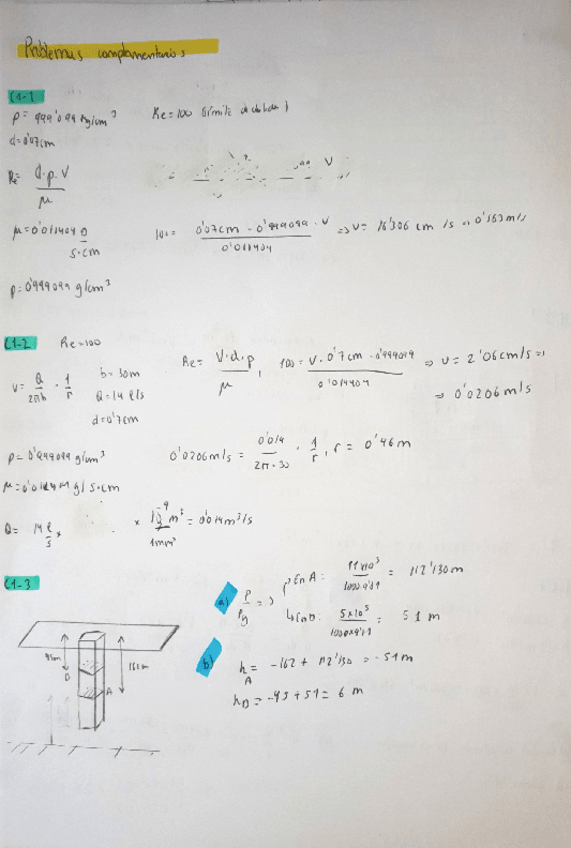 Problemas complementarios
C1-1
ρ = 999'099 kg/cm³ Re = 100
d = 0'07cm
Re = d·ρ·V / μ
μ = 0'011404 g / s·cm
100 = 0'07cm · 0'999099 · V / 0'011404 ⇒ V = 16'306 cm/s = 0'163 m/s
ρ = 0'999099 g/cm³
C1-2 Re = 100
V = Q / 2πb · 1 / r
b = 30m
Q = 14 l/s
d = 0'7cm
Re = V·d·ρ / μ , 100 = V · 0'7cm · 0'999099 / 0'011404 ⇒ V = 2'06cm/s ⇒
⇒ 0'0206 m/s
ρ = 0'999099 g/cm³
0'0206 m/s = 0'014 / 2π · 30 · 1 / r , r = 0'46 m
μ = 0'011404 g/s·cm
Q = 14 l / s × × m³ = 0'014m³/s
C1-3
a) P / ρg ⇒ En A: = 112'130 m
En B: 5×10⁵ / 1000×9'81 = 51 m
b) h_A = -162 + 112'130 = -51 m
h_B = -45 + 51 = 6 m
45m
162m
B
A